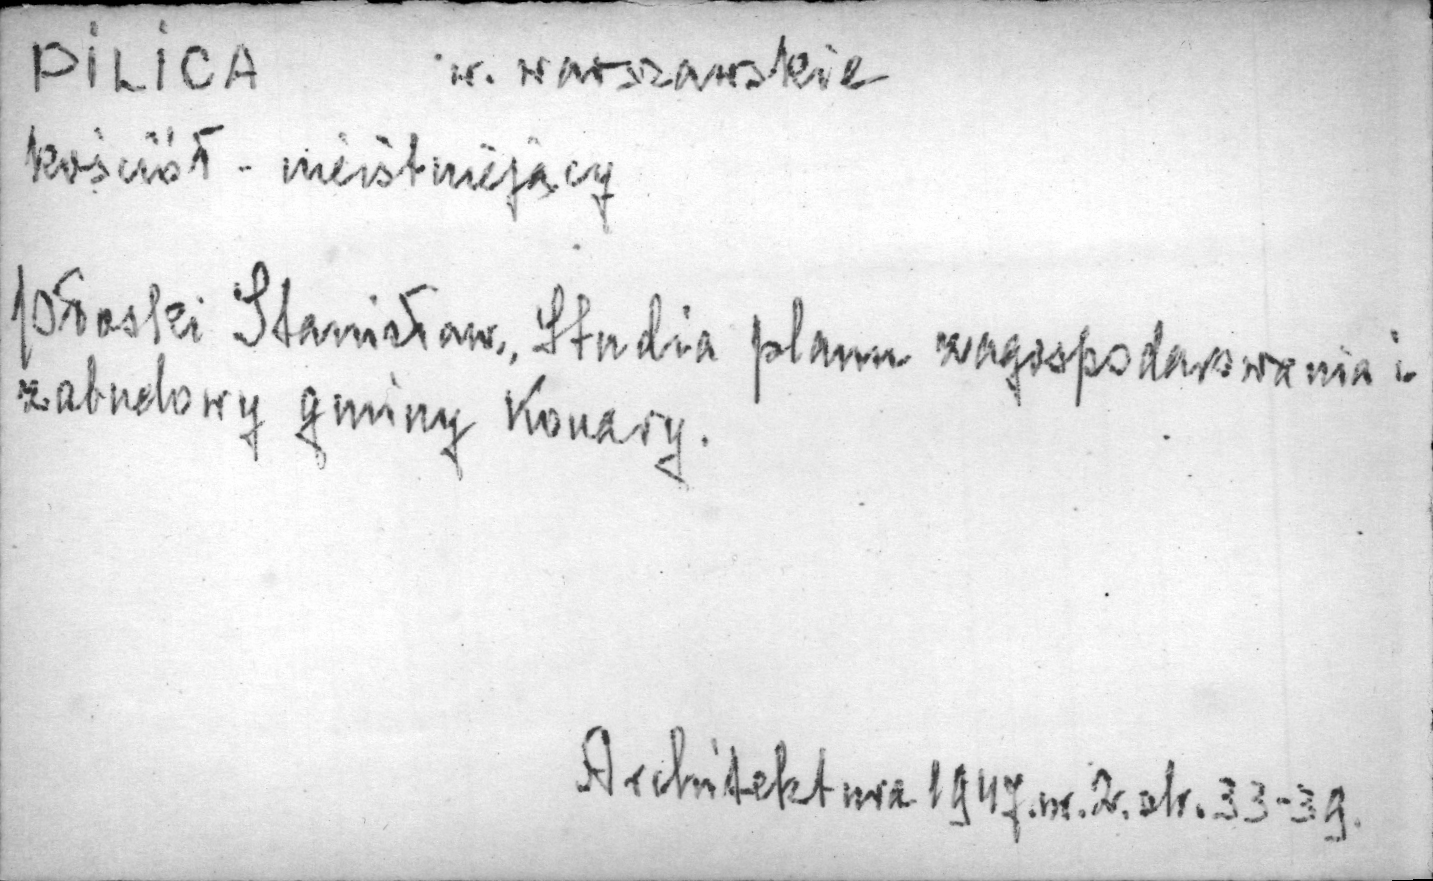 PILICA w. warszawskie
kościół - nieistniejący
Płoski Stanisław, Studia planu zagospodarowania i
zabudowy gminy Konary.
Architektura 1947. nr. 2. str. 33-39.